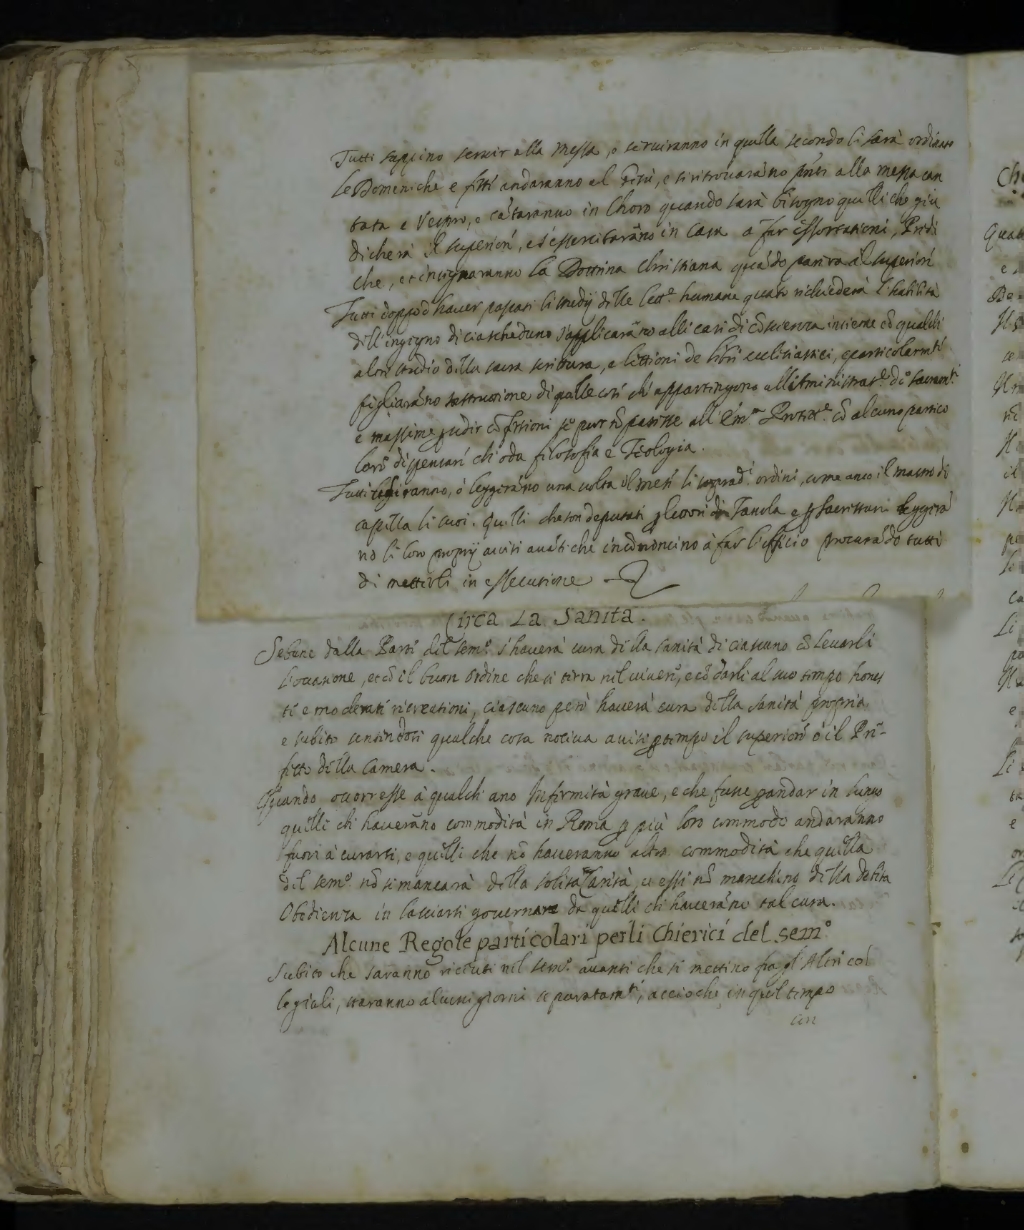 Tutti sappino servir alla Messa, e serviranno in quella secondo li sarà ordinato
Le Domeniche e feste andaranno al Giesù, e si ritrovarāno pñti alla messa can
tata e Vespro, e cātaranno in Choro quando sarà bisogno quelli che giu
dicherà il superiore, e s'essercitarāno in Casa a far essortationi, Predi
che, et insegnaranno la Dottrina christiana quādo parirà al superiore
Tutti doppo d'haver passati li studij delle humane quāto richiederà l'habilità
dell'ingegno di ciascheduno s'applicarāno alli casi di cōscienza insieme cō qualche
altro studio della sacra scrittura, e lettioni de libri ecclesiastici, e particolarmte
pigliarāno instruttione di quelle cose che appartengono all'Aministrate di sacramti
e massime udir cōfessioni se pur nō paresse all' Emo Protete cō alcuno partico
lare dispensare che oda filosofia e Teologia.
Tutti ò leggerāno una volta il mese li sopradi ordini, come anco il maestro di
capella li suoi. Quelli che son deputati Lettori di Tavola e Sacristani leggera
no li loro proprij avisi avāti che incōmincino à far l'officio procurādo tutti
di metterli in essecutione
Circa La Sanità.
Sebene dalla Parte del semo s'haverà cura della sanità di ciascuno cō levarli
l'occasione, et cō il buon ordine che si tiene nel vivere, e cō darli al suo tempo hones
te e moderate ricreationi, ciascuno però haverà cura della sanità propria
e subito sentendosi qualche cosa nociva avisi ꝑ tempo il superiore ò il Pre-
fetto della Camera.
Quando occorresse à qualche uno Infirmità grave, e che fusse ꝑ andar in lungo
quelli che haverāno commodità in Roma ꝑ più loro commodo andaranno
fuori à curarsi, e quelli che nō haveranno altra commodità che quella
del semo nō si mancarà della solita Carità, et essi nō manchino della debita
Obedienza in lasciarsi governare da quelli che haverāno tal cura.
Alcune Regole particolari per li Chierici del semo
Subito che saranno riceuti nel semo avanti che si mettino fra gl'Altri col
legiali, staranno alcuni giorni separatamte, acciochè in quel tempo